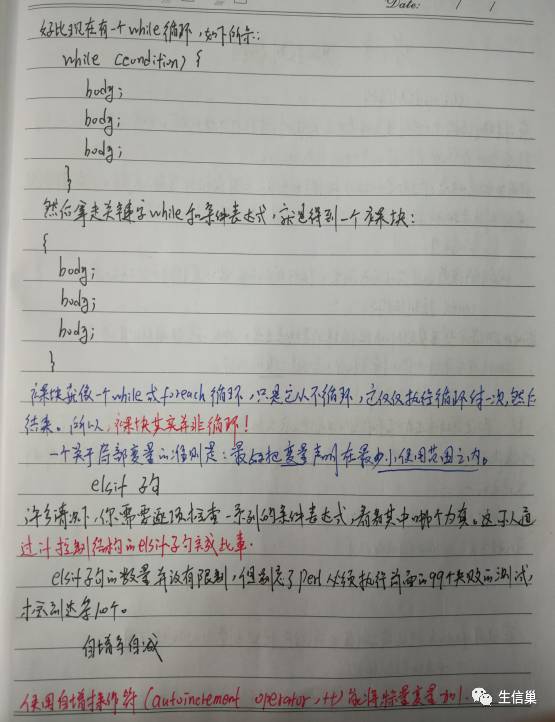 Date: / /
好比现在有一个while循环，如下所示：
while (condition) {
body;
body;
body;
}
然后拿走关键字while和条件表达式，就会得到一个裸块：
{
body;
body;
body;
}
裸块就像一个while或foreach循环，只是它从不循环，它仅仅执行循环体一次，然后
结束。所以，裸块其实并非循环！
一个关于局部变量的准则是：最好把变量声明在最小使用范围之内。
elsif 子句
许多情况下，你需要逐项检查一系列的条件表达式，看看其中哪个为真。这可以通
过if控制结构的elsif子句来
elsif子句的数量并没有限制，但别忘了Perl必须执行前面的99个失败的测试，
才到达第100个。
自增和自减
使用自增操作符(autoincrement operator, ++)能将标量变量加1.
生信巢